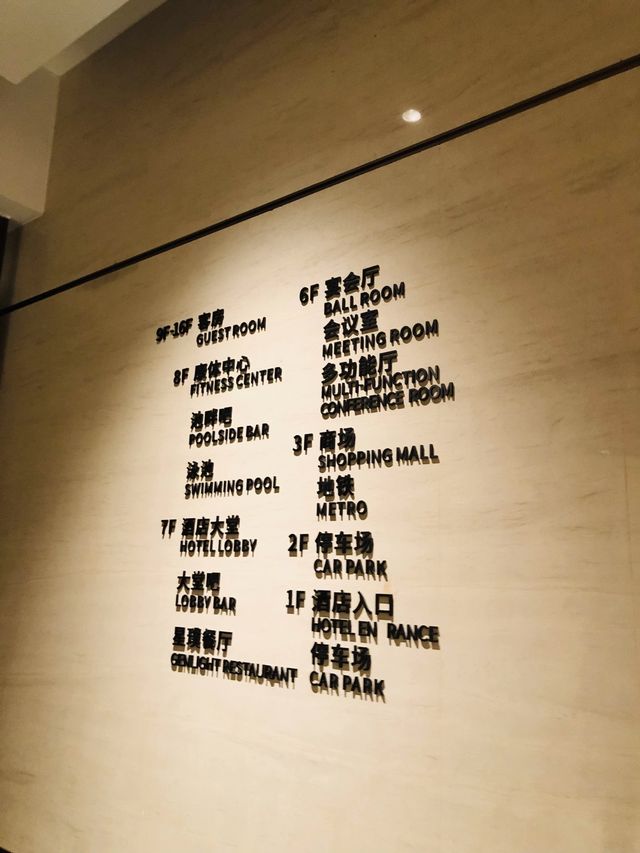 9F-16F 客房
GUEST ROOM
8F 康体中心
FITNESS CENTER
池畔吧
POOLSIDE BAR
泳池
SWIMMING POOL
7F 酒店大堂
HOTEL LOBBY
大堂吧
LOBBY BAR
星璞餐厅
GEMLIGHT RESTAURANT
6F 宴会厅
BALL ROOM
会议室
MEETING ROOM
多功能厅
MULTI-FUNCTION
CONFERENCE ROOM
3F 商场
SHOPPING MALL
地铁
METRO
2F 停车场
CAR PARK
1F 酒店入口
HOTEL EN RANCE
停车场
CAR PARK